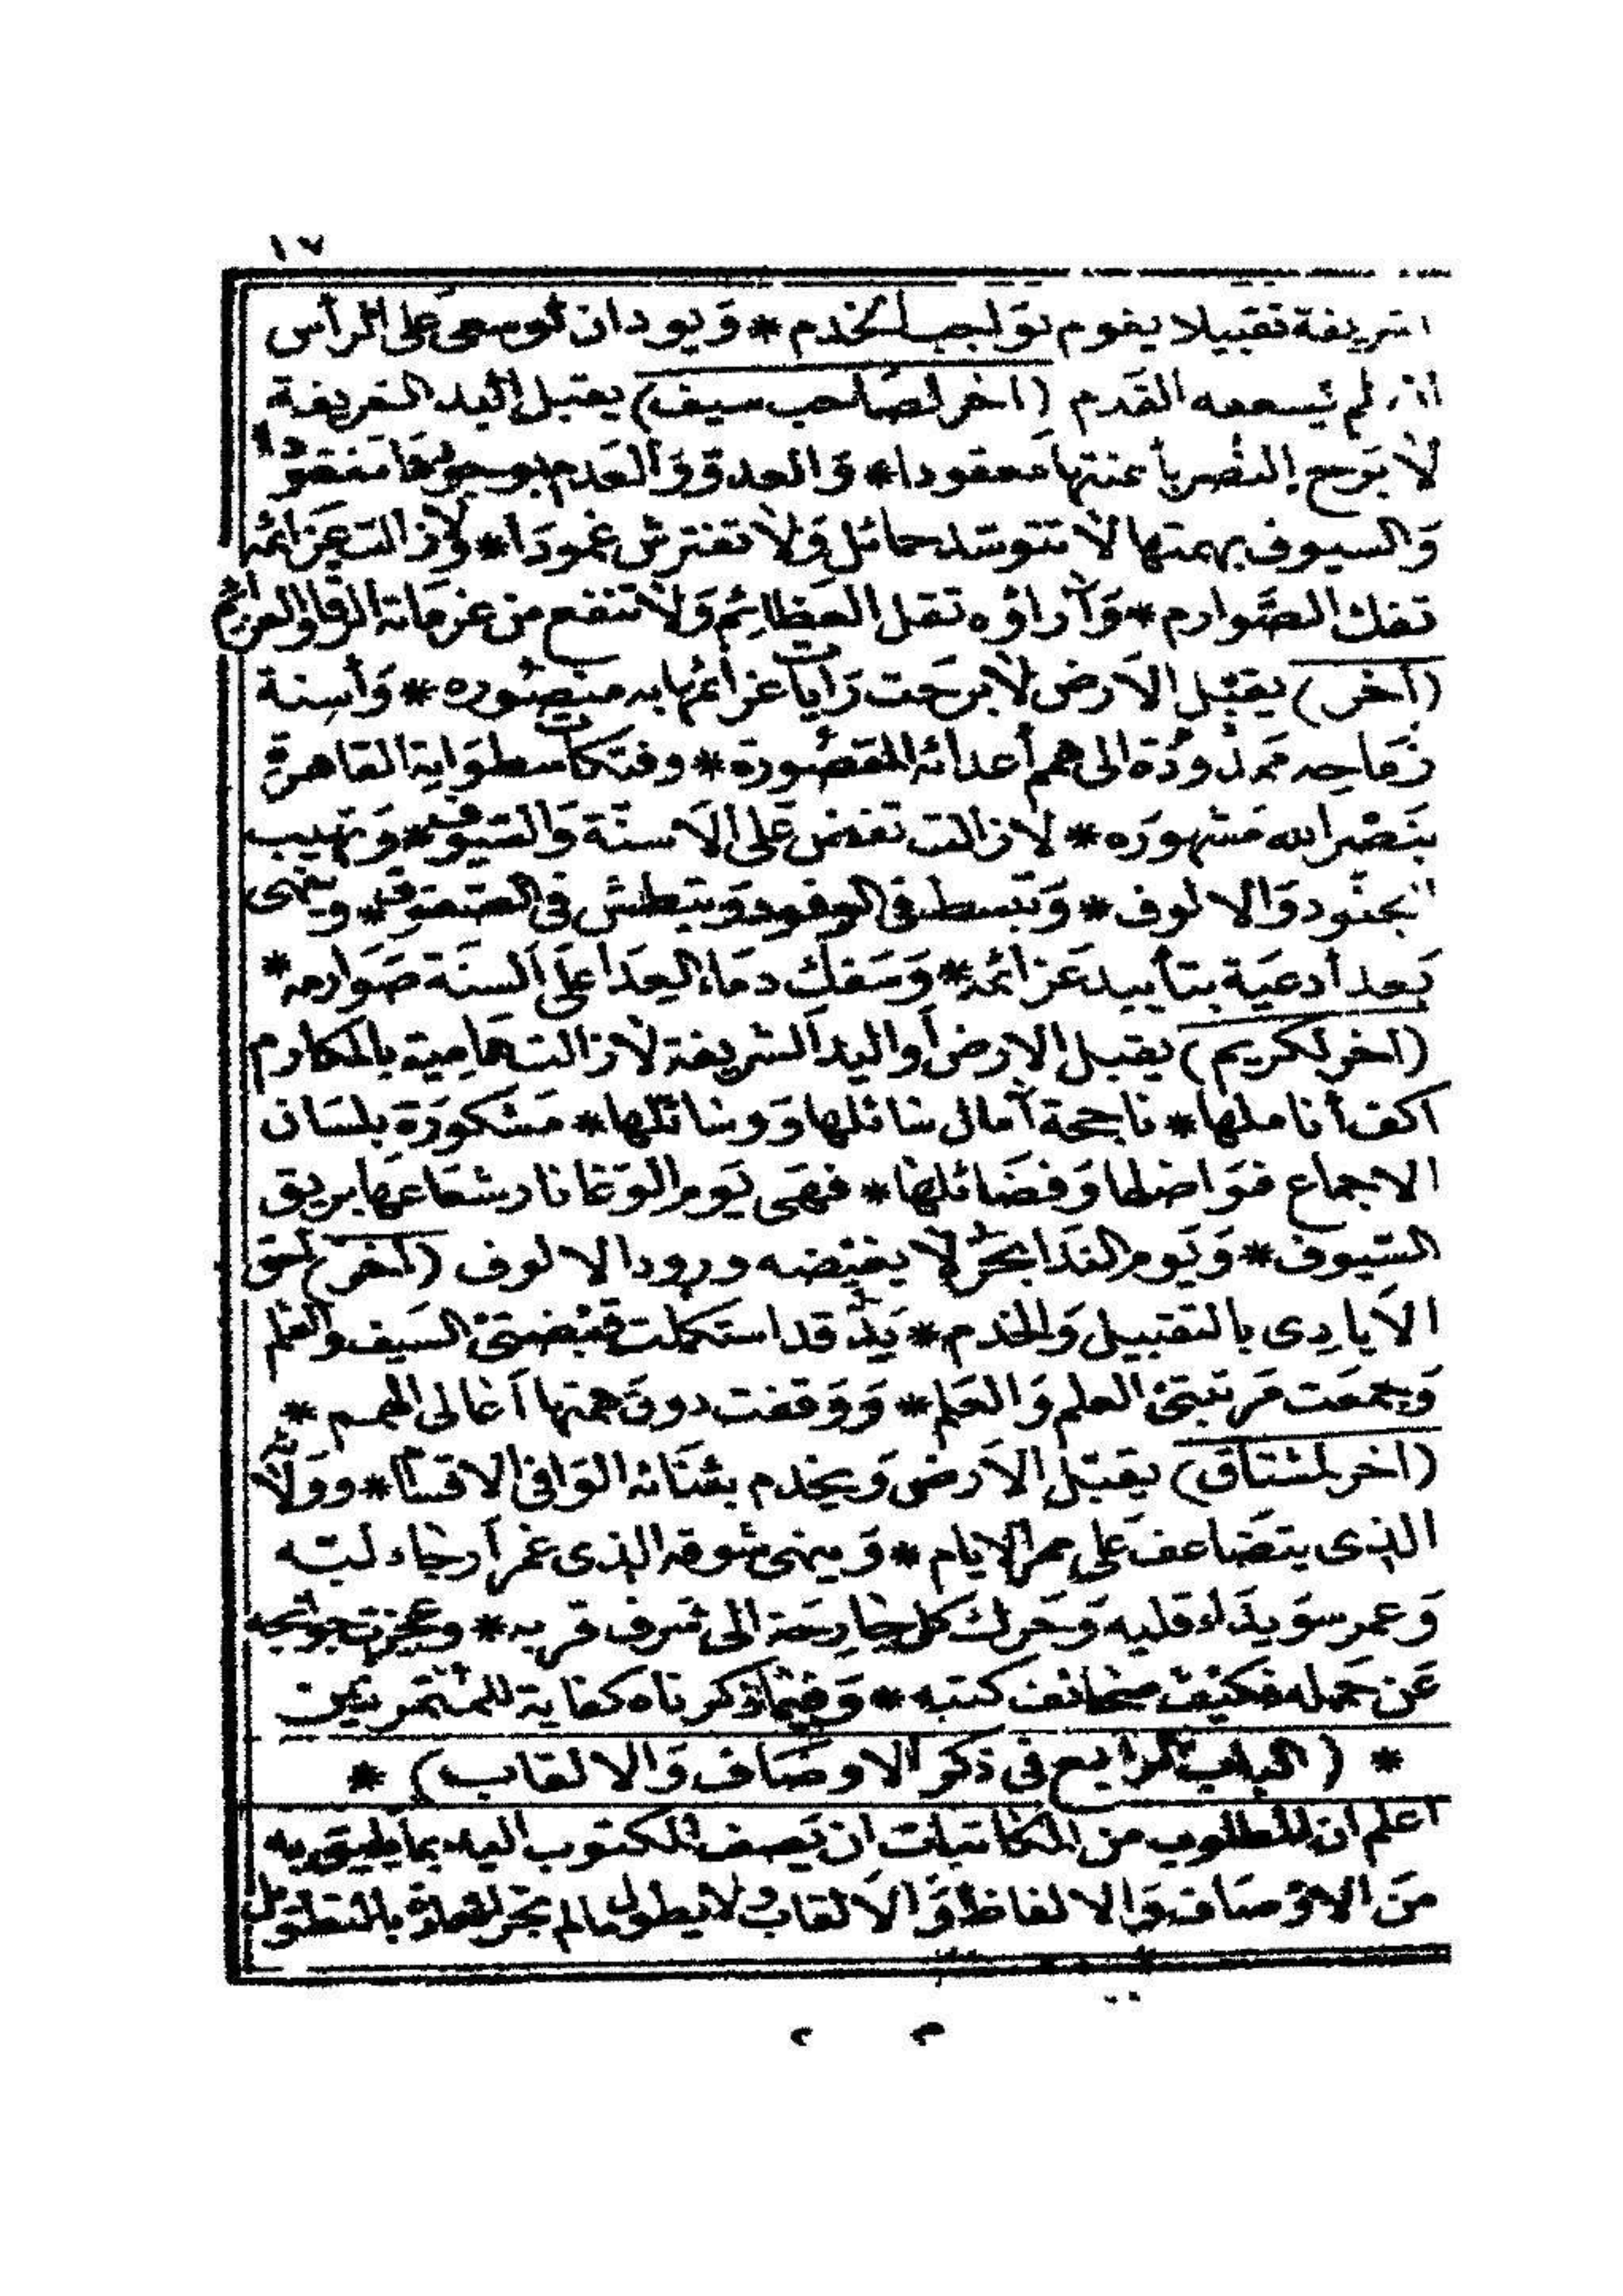 ١٧
الشريفة تقبيلا يقوم بواجب الخدم * ويود ان لو سعى على الرأس
اذ لم يسعه القدم (اخر لصاحب سيف) يقبل اليد الشريفة
لا برح النصر بأعنتها معقودا * والعدو والعدم بوجودها مفقودا
والسيوف بهمتها لا تتوسد حمائل ولا تفترش غمودا * ولا زالت عزائمه
تفك الصوارم * وآراؤه تقل العظائم ولا تنفع من عزماته الرقا والعزائم
(أخر) يقبل الارض لا برحت رايات عزائمها به منصوره * وأسنة
رماحه ممدودة الى همم أعدائه المقصورة * وفتكات سطواته القاهرة
بنصر الله مشهوره * لا زالت تغض على الاسنة والسيوف * وتهيب
الجنود والالوف * وتبسط فى الوفود وتبطش فى الصفوف * وينهى
بعد أدعية بتأييد عزائمه * وسفك دماء العدا على السنة صوارمه *
(اخر لكريم) يقبل الارض أو اليد الشريفة لا زالت هامية بالمكارم
اكف أناملها * ناجحة آمال سائلها ووسائلها * مشكورة بلسان
الاجماع فواضلها وفضائلها * فهى يوم الوغا نار شعاعها بريق
السيوف * ويوم الندا بحر لا يغيضه ورود الالوف (اخر) لحق
الايادى بالتقبيل والخدم * يد قد استكملت قبضتى السيف والقلم
وجمعت مرتبتى العلم والعلم * ووقفت دون همتها أعالى الهمم *
(اخر لمشتاق) يقبل الارض ويخدم بثنائه الوافى الاقسام * وولائه
الذى يتضاعف على ممر الايام * وينهى شوقه الذى غمر أرجاء لبه
وعمر سويداء قلبه وحرك كل جارحة الى شرف قربه * وعجزت جوانحه
عن حمله فكيف صحائف كتبه * وفيما ذكرناه كفاية للمتمرنين
* (الباب الرابع فى ذكر الاوصاف والالقاب) *
اعلم ان المطلوب من المكاتبات ان يصف المكتوب اليه بما يليق به
من الاوصاف والالفاظ والالقاب ولا يطول ما لم تجر العادة بالتطويل
٣ ٢